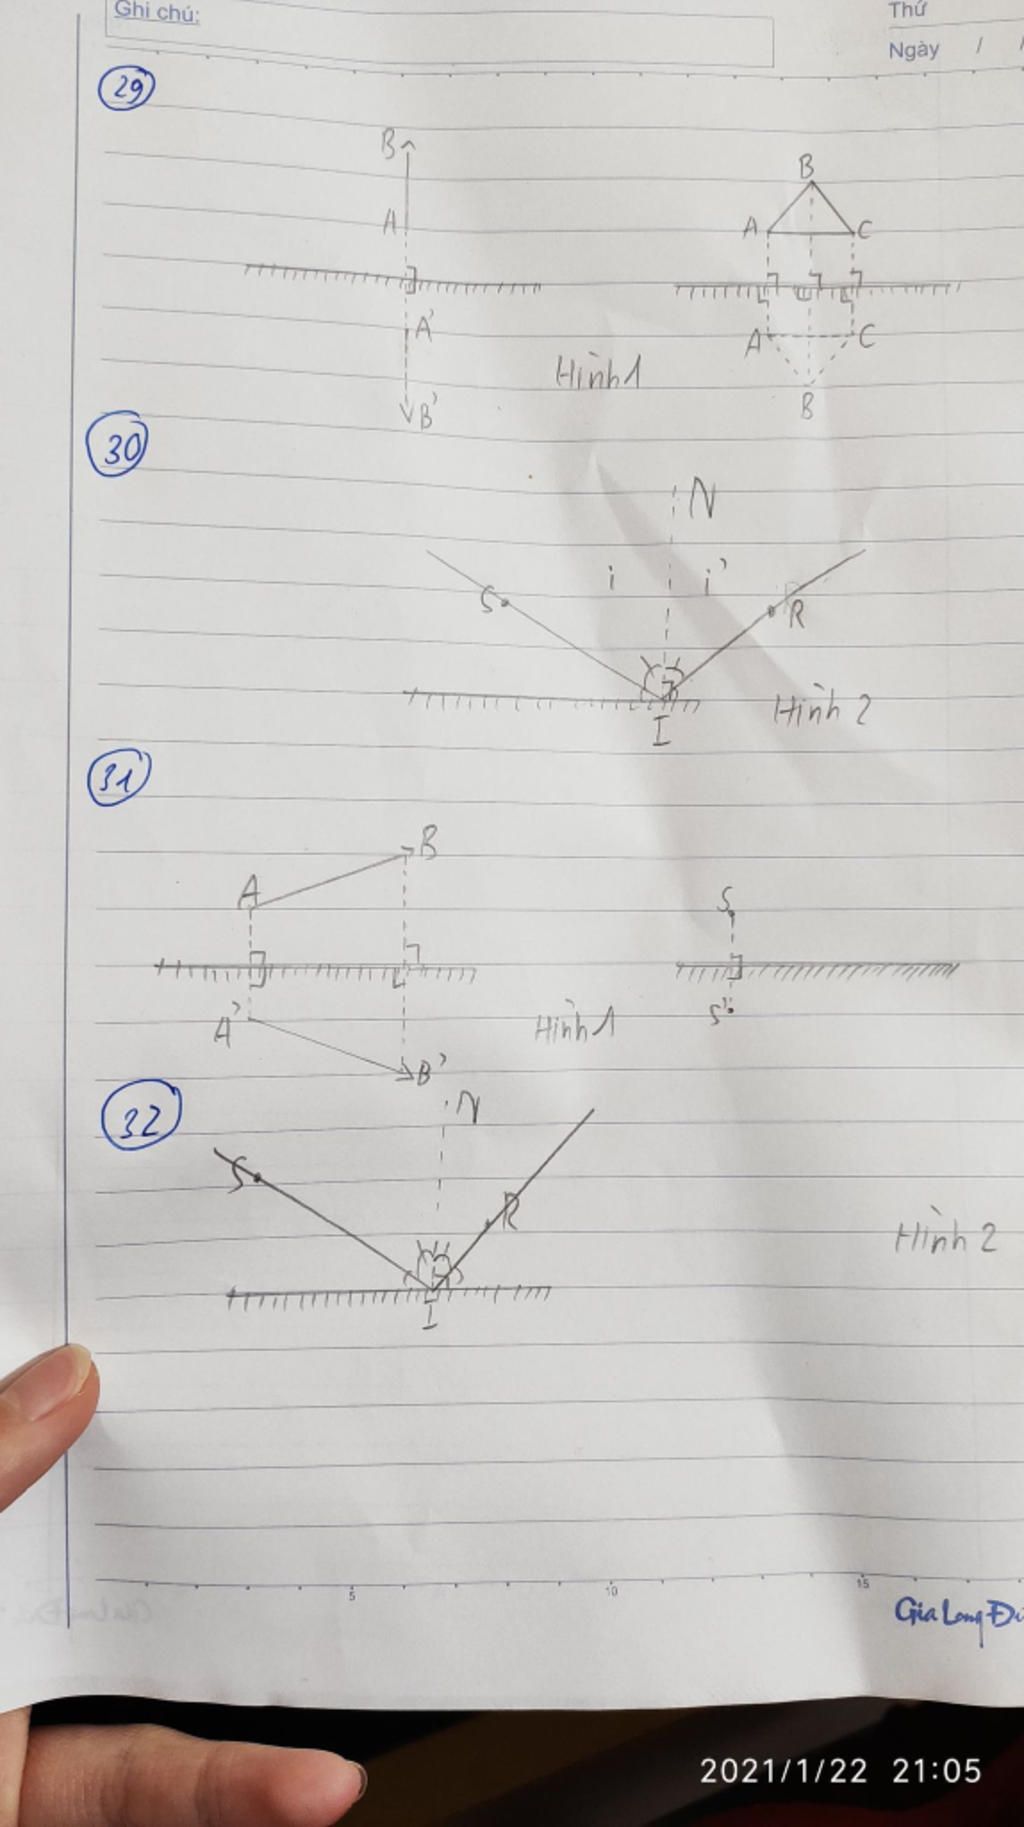 Ghi chú:
Thứ
Ngày / /
29
B
A
A'
B'
B
A C
A C
B
Hình 1
30
N
i i'
S
R
I
Hình 2
31
B
A
A'
B'
S
S'
Hình 1
32
N
S
R
I
Hình 2
5 10 15
Gia Long
2021/1/22 21:05